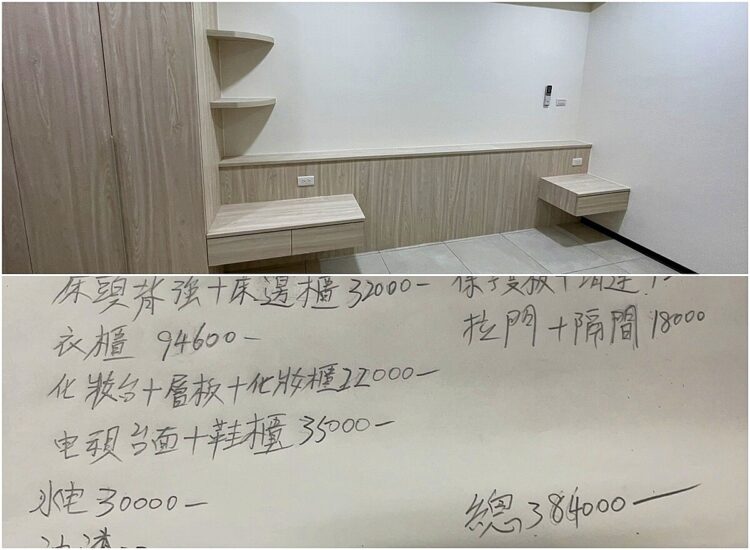 床頭背強+床邊櫃 32000-
衣櫃 94600-
化妝台+層板+化妝櫃22000-
电視台面+鞋櫃 35000-
水电 30000-
拉門+隔間 18000
總 384000-